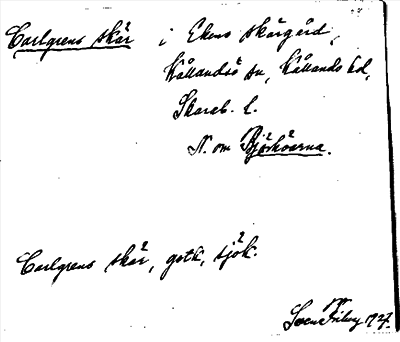 Carlgrens skär i Ekens skärgård,
Kållandsö sn, Kållands hd,
Skarab. l.
N. om Björköarna.
Carlgrens skär, getk, sjök.
Sven 1927.